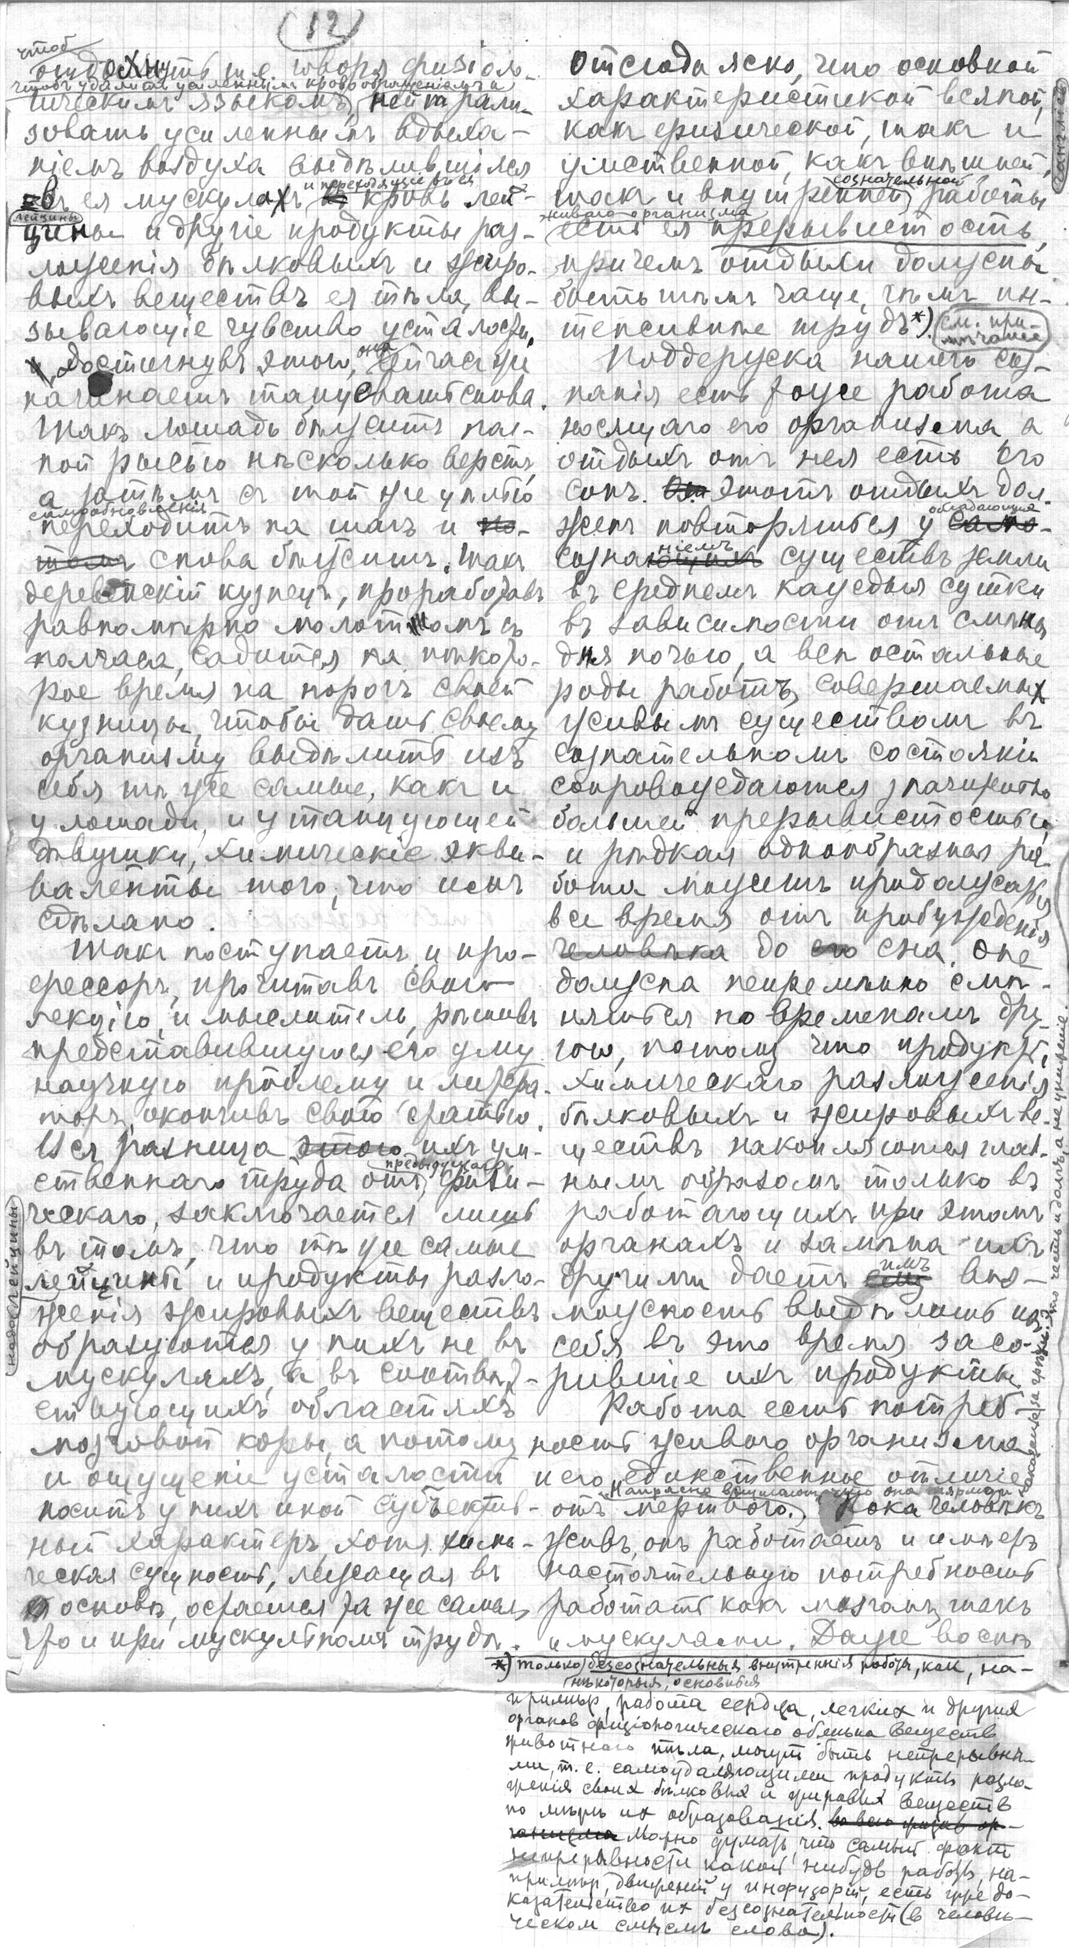 (12)
чтоб
отдохнуть т.е. говоря физіоло-
чтобъ удалить усиленнымъ кровообращеніемъ и
гическимъ языкомъ, нейтрали-
зовать усиленнымъ вдыха-
ніемъ воздуха выдѣлившіеся
въ ея мускулахъ и переходящіе въ ея кровь лей-
лейцины
цины и другіе продукты раз-
ложенія бѣлковыхъ и жиро-
выхъ веществъ ея тѣла, вы-
зывающіе чувство усталости,
Достигнувъ этого, она тотчасъ же
начинаетъ танцовать снова.
Такъ лошадь бѣжитъ пол-
ной рысью нѣсколько верстъ,
а затѣмъ съ той же цѣлью
самообновленія
переходитъ на шагъ и по-
томъ снова бѣжитъ. Такъ
деревенскій кузнецъ, проработавъ
равномѣрно молоткомъ съ
полчаса, садится на нѣкото-
рое время на порогъ своей
кузницы, чтобы дать своему
организму выдѣлить изъ
себя тѣ же самые, какъ и
у лошади, и у танцующей
дѣвушки, химическіе экви-
валенты того, что имъ
сдѣлано.
Такъ поступаетъ и про-
фессоръ, прочитавъ свою
лекцію, и мыслитель, рѣшивъ
представившуюся его уму
научную проблему и литера-
торъ, окончивъ свою статью.
Вся разница этого ихъ ум-
ственнаго труда отъ предыдущаго физи-
ческаго, заключается лишь
въ томъ, что тѣ же самые
лейцины и продукты разло-
женія жировыхъ веществъ
образуются у нихъ не въ
мускулахъ, а въ соотвѣт-
ствующихъ областяхъ
мозговой коры, а потому
и ощущеніе усталости
носитъ у нихъ иной субъектив-
ный характеръ, хотя хими-
ческая сущность, лежащая въ
основѣ, остается та же самая,
что и при мускульномъ трудѣ.
надо: лейцины
Отсюда ясно, что основной
характеристикой всякой,
какъ физической, такъ и
умственной, какъ внѣшней,
такъ и внутренней сознательной работы
живаго организма
есть ея прерывистость,
причемъ отдыхи должны
быть тѣмъ чаще, чѣмъ ин-
тенсивнѣе трудъ*). см. при-
мѣчаніе
Поддержка нашего соз-
нанія есть тоже работа
носящаго его организма, а
отдыхъ отъ нея есть его
сонъ. Этотъ отдыхъ дол-
женъ повторяться у обладающихъ само-
сознаніемъ существъ земли
въ среднемъ каждыя сутки
въ зависимости отъ смѣны
дня ночью, а всѣ остальные
роды работъ, совершаемыхъ
живымъ существомъ въ
сознательномъ состояніи
сопровождаются значительно
большей прерывистостью,
и рѣдкая однообразная ра-
бота можетъ продолжаться
все время отъ пробужденія
человѣка до его сна. Онѣ
должна непремѣнно смѣ-
няться по временамъ дру-
гою, потому что продукты
химическаго разложенія
бѣлковыхъ и жировыхъ ве-
ществъ накопляются глав-
нымъ образомъ только въ
работающихъ при этомъ
органахъ и замѣна ихъ
другими даетъ имъ воз-
можность выдѣлить изъ
себя въ это время засо-
рившіе ихъ продукты.
Работа есть потреб-
ность живого организма
и его единственное отличіе
отъ мертвого. Напрасно возмущаютъ что она
Пока человѣкъ
живъ, онъ работаетъ и имѣетъ
настоятельную потребность
работать какъ мозгомъ, такъ
и мускулами. Даже во снѣ
это честь и долгъ, а не униженіе.
*) Только безсознательныя внутреннія работы, какъ, на-
нѣкоторыя, основныя
примѣръ, работа сердца, легкихъ и другихъ
органов физіологическаго обмѣна веществъ
животнаго тѣла, могутъ быть непрерывны-
ми, т. е. самоудаляющими продукты разло-
женія своихъ бѣлковых и жировых веществъ
по мѣрѣ их образованія.
Можно думать, что самый фактъ
непрерывности какой нибудь работы, на-
примѣръ, движеній у инфузорій, есть уже до-
казательство их безсознательности (в человѣ-
ческом смыслѣ слова).